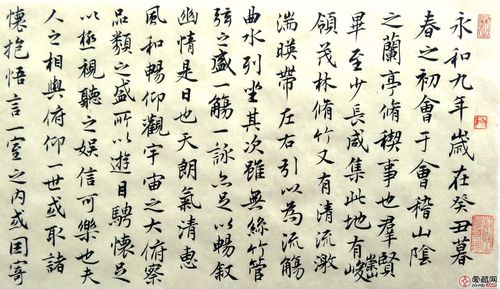 永和九年歲在癸丑暮
春之初會于會稽山陰
之蘭亭脩禊事也群賢
畢至少長咸集此地有崇山峻
領茂林脩竹又有清流激
湍暎帶左右引以為流觴
曲水列坐其次雖無絲竹管
弦之盛一觴一詠亦足以暢敘
幽情是日也天朗氣清惠
風和暢仰觀宇宙之大俯察
品類之盛所以遊目騁懷足
以極視聽之娛信可樂也夫
人之相與俯仰一世或取諸
懷抱悟言一室之內或因寄